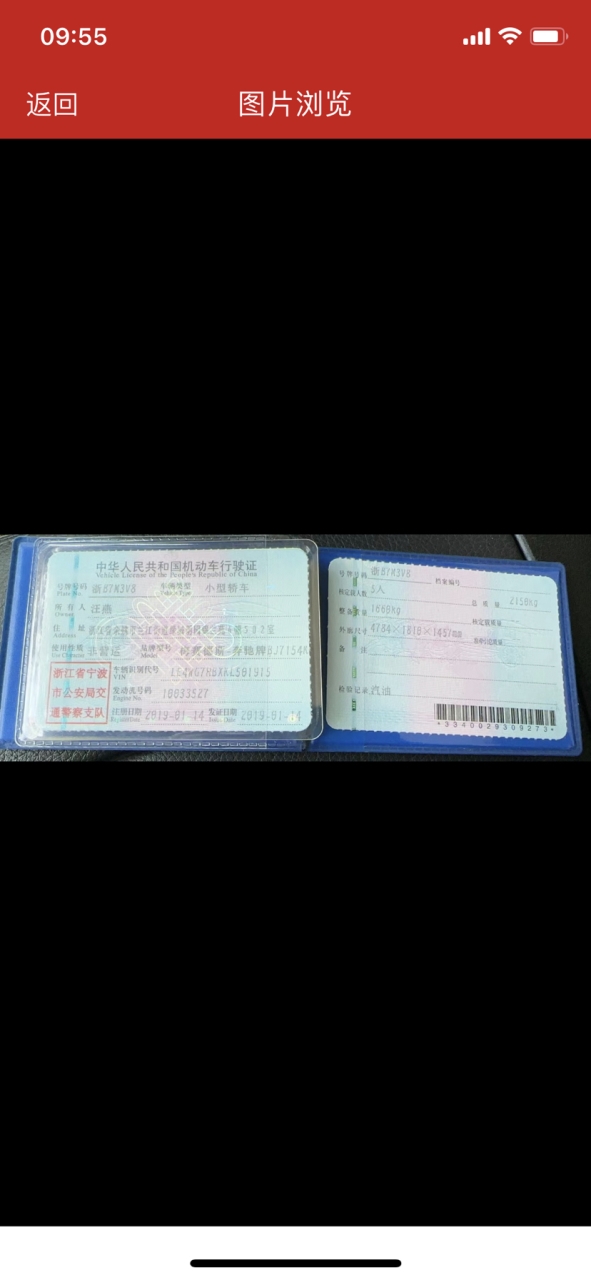 09:55
返回
图片浏览
中华人民共和国机动车行驶证
Vehicle License of the People's Republic of China
号牌号码 浙B7N3V8 车辆类型 小型轿车
Plate No. Vehicle Type
所有人 汪燕
Owner
住址
Address
使用性质 非营运 品牌型号 梅赛德斯-奔驰牌BJ7154
Use Character Model
浙江省宁波
市公安局交
通警察支队
车辆识别代号
VIN
发动机号码 10033527
Engine No.
注册日期 2019-01-14 发证日期 2019-01-14
Register Date Issue Date
号牌号码 浙B7N3V8 档案编号
核定载人数 5人 总质量 2150kg
整备质量 1668kg 核定载质量
外廓尺寸 4784×1810×1457mm 准牵引总质量
备注
检验记录 汽油
*3340029309273*